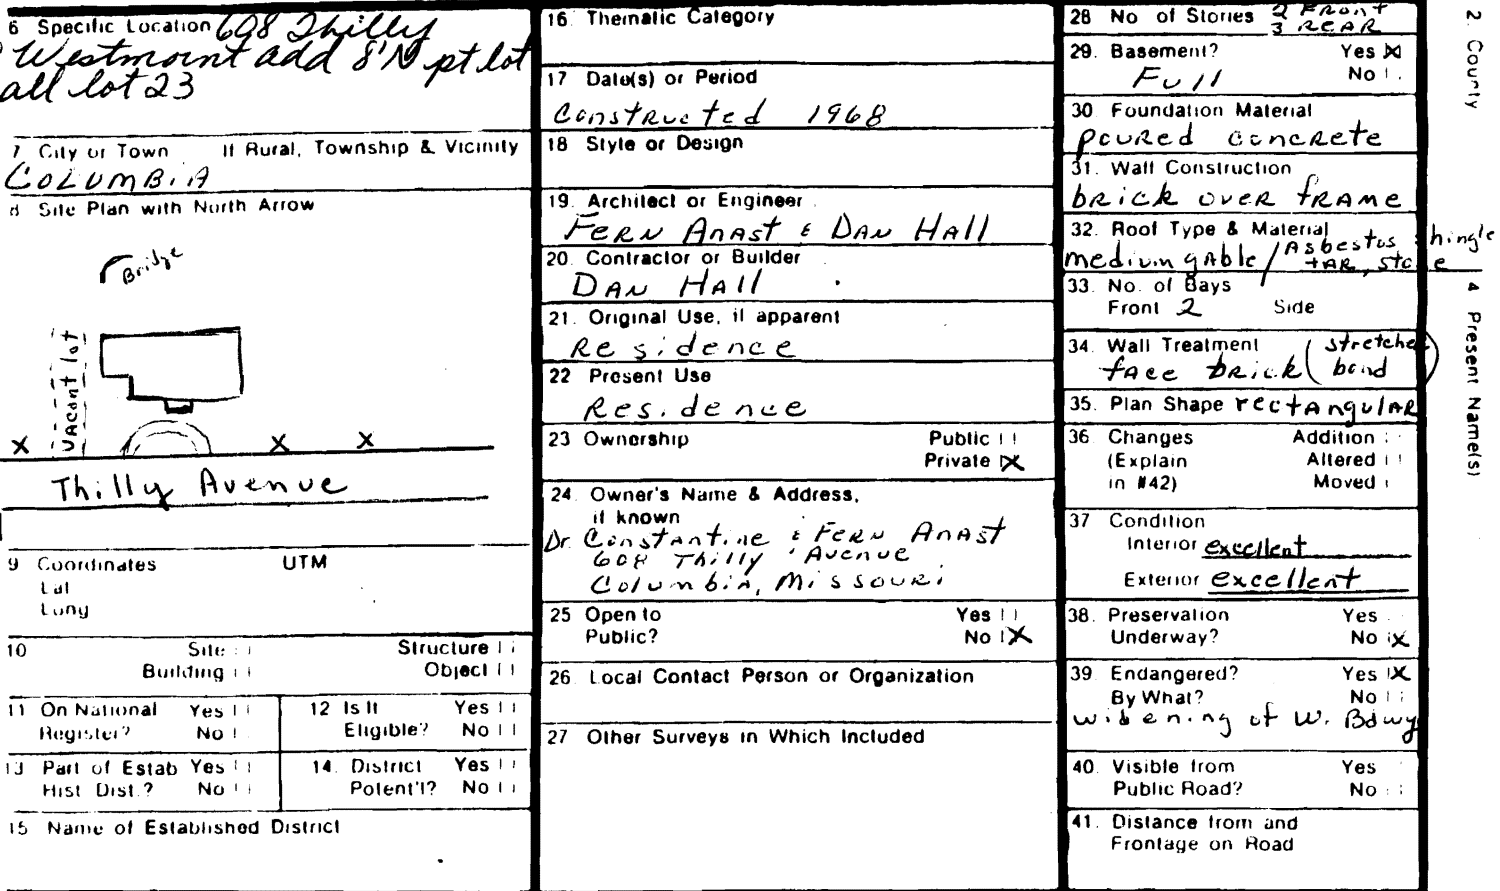 6 Specific Location 608 Thilly
Westmount add 8' N pt lot
all lot 23
7 City or Town If Rural, Township & Vicinity
COLUMBIA
8 Site Plan with North Arrow
Bridge
Vacant lot
X X X
Thilly Avenue
9 Coordinates UTM
Lat
Long
10 Site Structure
Building Object
11 On National Register? Yes No
12 Is It Eligible? Yes No
13 Part of Estab Hist Dist.? Yes No
14. District Potent'l? Yes No
15 Name of Established District
16. Thematic Category
17 Date(s) or Period
Constructed 1968
18 Style or Design
19. Architect or Engineer
FERN ANAST & DAN HALL
20. Contractor or Builder
DAN HALL
21. Original Use, if apparent
Residence
22 Present Use
Residence
23 Ownership Public
Private X
24. Owner's Name & Address,
if known
Dr. Constantine & FERN ANAST
608 Thilly Avenue
Columbia, Missouri
25 Open to Yes
Public? No X
26. Local Contact Person or Organization
27 Other Surveys in Which Included
28 No of Stories 2 FRONT
3 REAR
29. Basement? Yes X
Full No
30. Foundation Material
poured concrete
31. Wall Construction
brick over frame
32. Roof Type & Material
medium gable / Asbestos shingle
TAR, stone
33. No. of Bays
Front 2 Side
34. Wall Treatment (stretcher
face brick bond)
35. Plan Shape rectangular
36. Changes Addition
(Explain Altered
in #42) Moved
37 Condition
Interior excellent
Exterior excellent
38. Preservation Yes
Underway? No X
39. Endangered? Yes X
By What? No
widening of W. Bdwy
40. Visible from Yes
Public Road? No
41. Distance from and
Frontage on Road
2. County
4 Present Name(s)